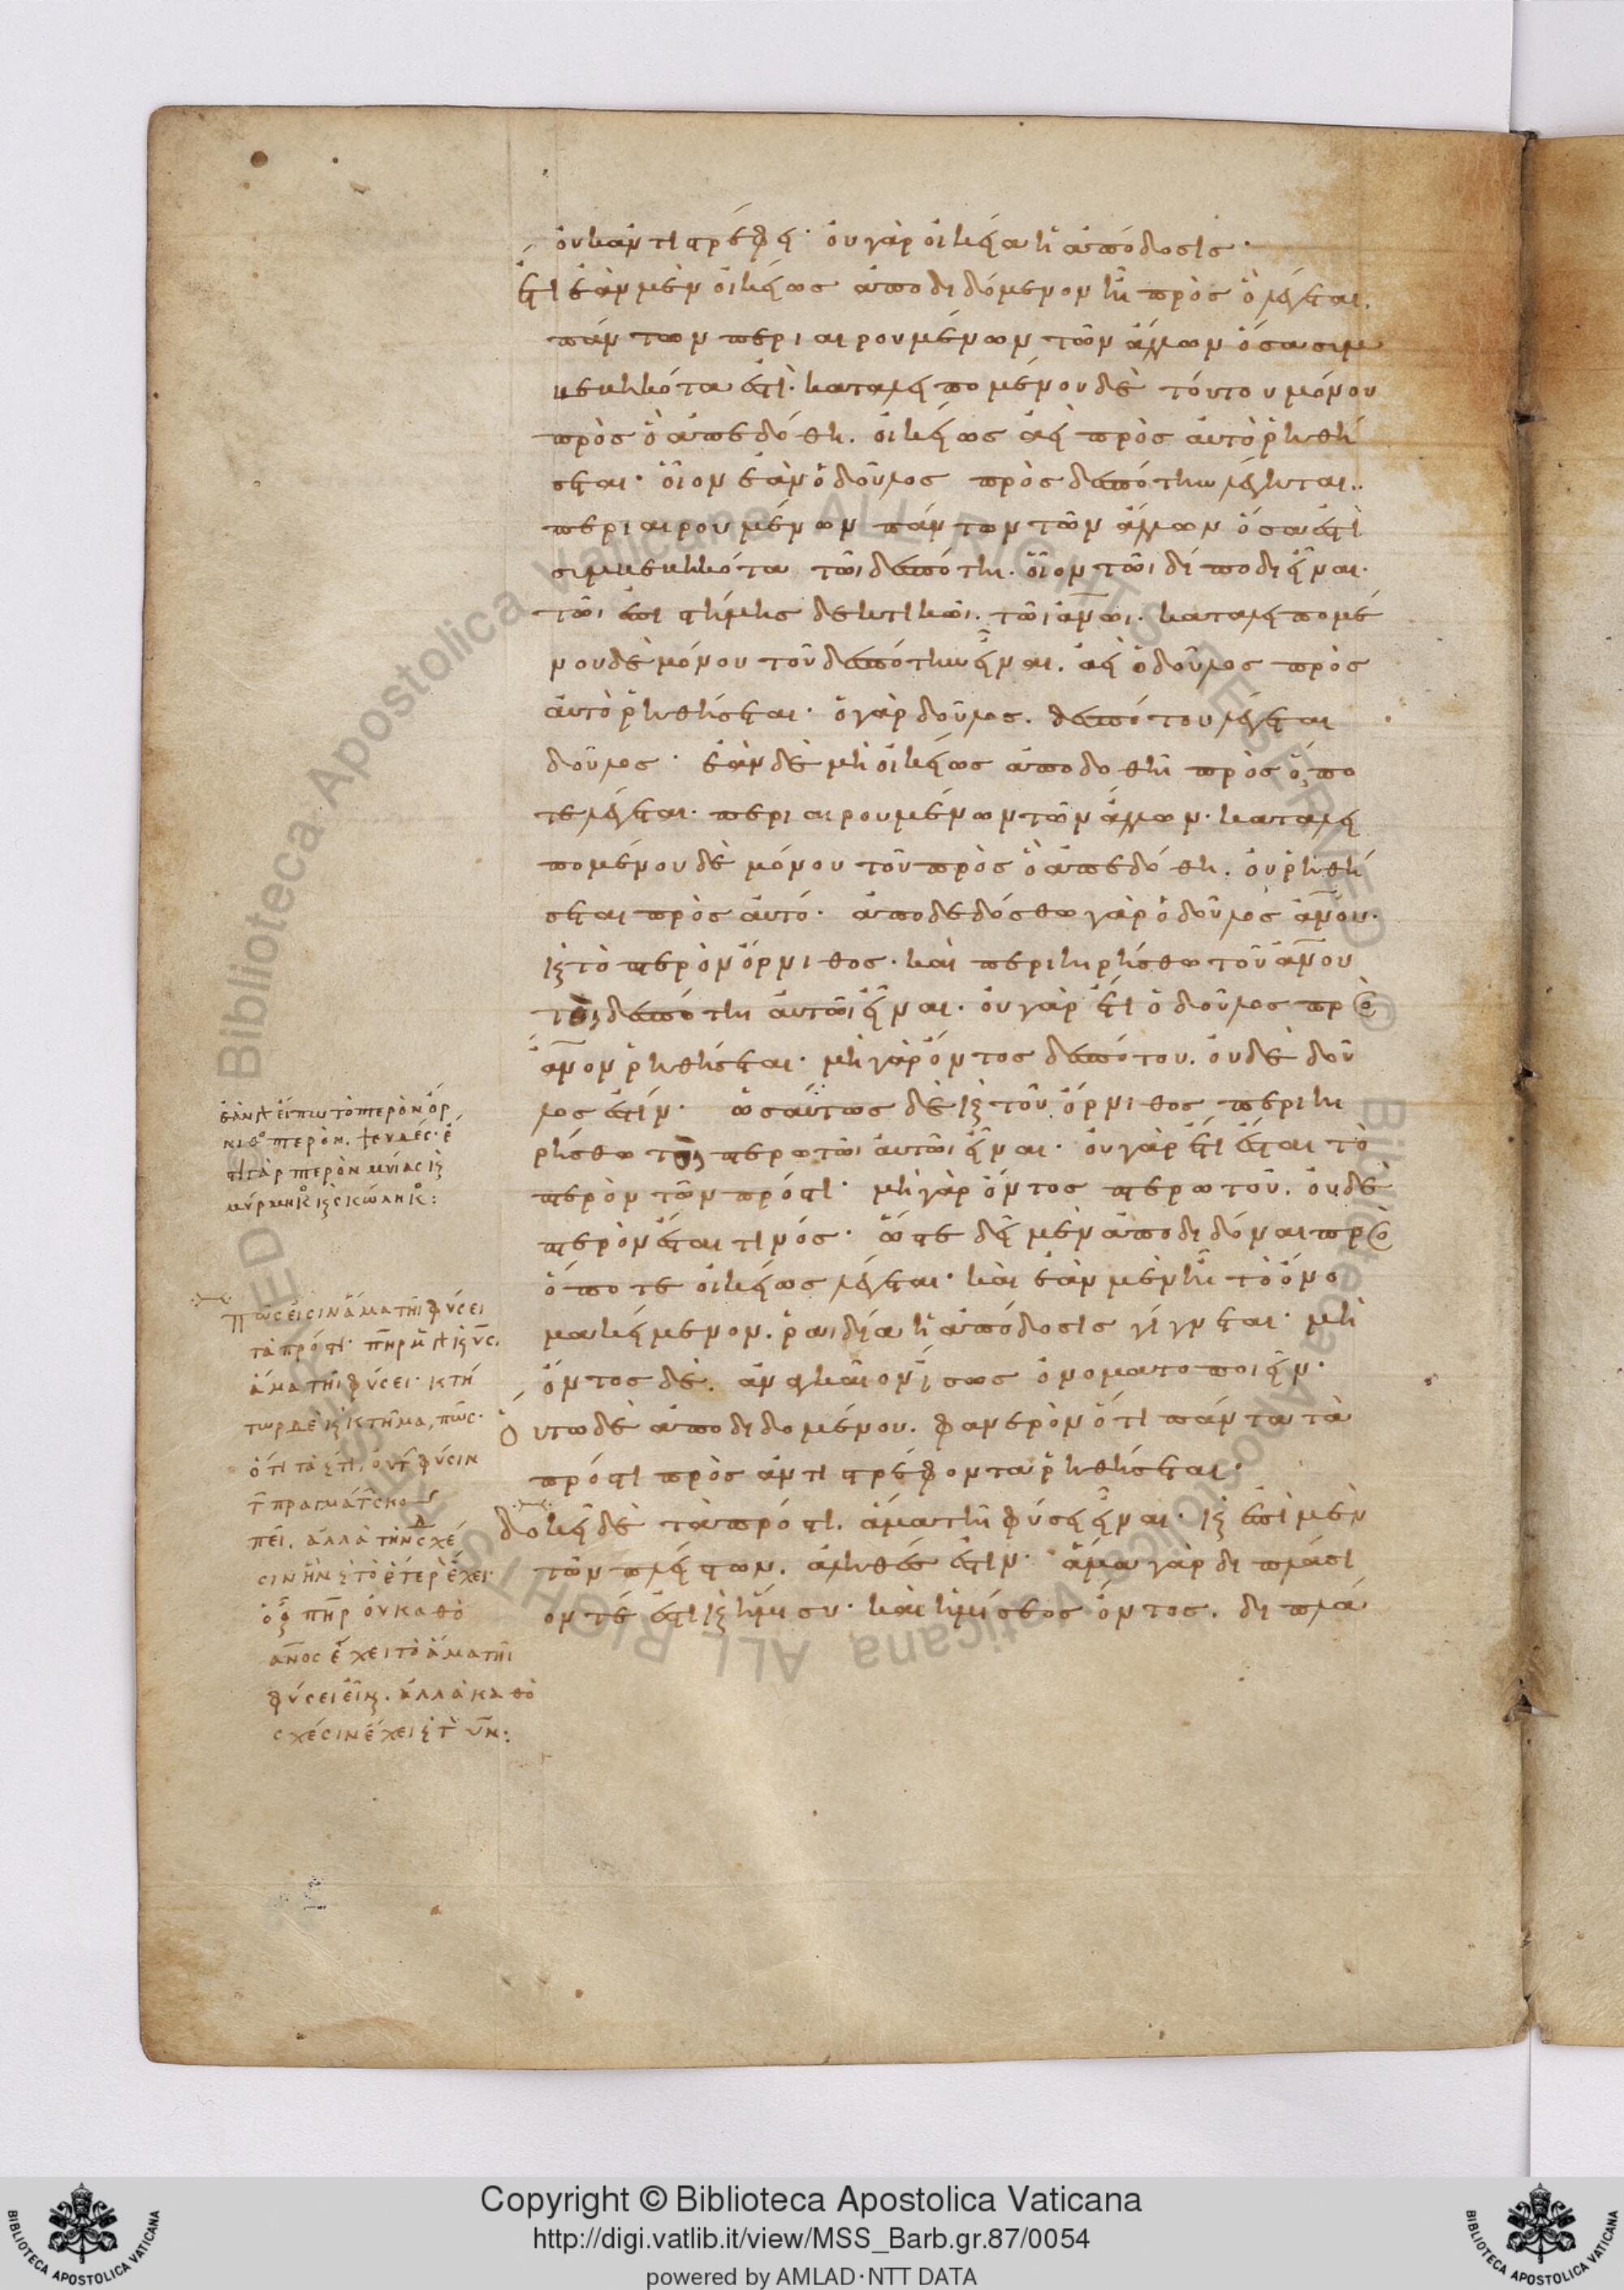 οὐκ ἀντιστρέφει· οὐ γὰρ οἰκεία ἡ ἀπόδοσις·
ἔτι ἐὰν μὲν οἰκείως ἀποδιδόμενον ἦι πρὸς ὃ λέγεται.
πάντων περιαιρουμένων τῶν ἄλλων ὅσα συμ
βεβηκότα ἐστί· καταλειπομένου δὲ τούτου μόνου
πρὸς ὃ ἀπεδόθη. οἰκείως ἀεὶ πρὸς αὐτὸ ῥηθή
σεται· οἷον ἐὰν ὁ δοῦλος πρὸς δεσπότην λέγηται.
περιαιρουμένων πάντων τῶν ἄλλων ὅσα ἐστὶ
συμβεβηκότα τῶι δεσπότηι. οἷον τῶι δίποδι εἶναι.
τῶι ἐπιστήμης δεκτικῶι. τῶι ἀνωι. καταλειπομέ
νου δὲ μόνου τοῦ δεσπότην εἶναι. ἀεὶ ὁ δοῦλος πρὸς
αὐτὸ ῥηθήσεται· ὁ γὰρ δοῦλος. δεσπότου λέγεται
δοῦλος· ἐὰν δὲ μὴ οἰκείως ἀποδοθῆι πρὸς ὅ, πο
τε λέγεται. περιαιρουμένων τῶν ἄλλων· καταλει
πομένου δὲ μόνου τοῦ πρὸς ὃ ἀπεδόθη. οὐ ῥηθή
σεται πρὸς αὐτό· ἀποδεδόσθω γὰρ ὁ δοῦλος ἀνου.
κ τὸ πτερὸν ὄρνιθος· καὶ περιηρήσθω τοῦ ἀνου
τὸ, δεσπότηι αὐτῶι εἶναι. οὐ γὰρ ἔτι ὁ δοῦλος πρὸς
ἀνον ῥηθήσεται· μὴ γὰρ ὄντος δεσπότου. οὐδὲ δοῦ
λος ἐστίν· ὡσαύτως δὲ κ τοῦ ὄρνιθος περιηι
ρήσθω τὸ, πτερωτῶι αὐτῶι εἶναι· οὐ γὰρ ἔτι ἔσται τὸ
πτερὸν τῶν πρός τι· μὴ γὰρ ὄντος πτερωτοῦ. οὐδὲ
πτερὸν ἔσται τινός· ὥστε δεῖ μὲν ἀποδιδόναι πρὸς
ὅ ποτε οἰκείως λέγεται· καὶ ἐὰν μὲν ἦι τὸ ὄνο
μα κείμενον. ῥαιδία ἡ ἀπόδοσις γίγνεται· μὴ
ὄντος δέ. ἀναγκαῖον ἴσως ὀνοματοποιεῖν·
οὕτω δὲ ἀποδιδομένου. φανερὸν ὅτι πάντα τὰ
πρός τι πρὸς ἀντιστρέφοντα ῥηθήσεται·
δοκεῖ δὲ τὰ πρός τι. ἅμα τῆι φύσει εἶναι. κ ἐπὶ μὲν
τῶν πλείστων. ἀληθές ἐστιν· ἅμα γὰρ διπλάσι
ον τέ ἐστι κ ἥμισυ· καὶ ἡμίσεος ὄντος. διπλά
πτερὸν. ψευδές·
τι γὰρ πτερὸν μυίας κ
Πῶς εἰσὶν ἅμα τῆι φύσει
τὰ πρός τι·
ἅμα τῆι φύσει· κτή
τωρ δὲ κ κτῆμα, πῶς·
πεῖ. ἀλλὰ τὴν σχέ
ἀνος ἔχει τὸ ἅμα τῆι
φύσει εἶναι. ἀλλὰ καθὸ
Copyright © Biblioteca Apostolica Vaticana
http://digi.vatlib.it/view/MSS_Barb.gr.87/0054
powered by AMLAD·NTT DATA
BIBLIOTECA APOSTOLICA VATICANA
BIBLIOTECA APOSTOLICA VATICANA